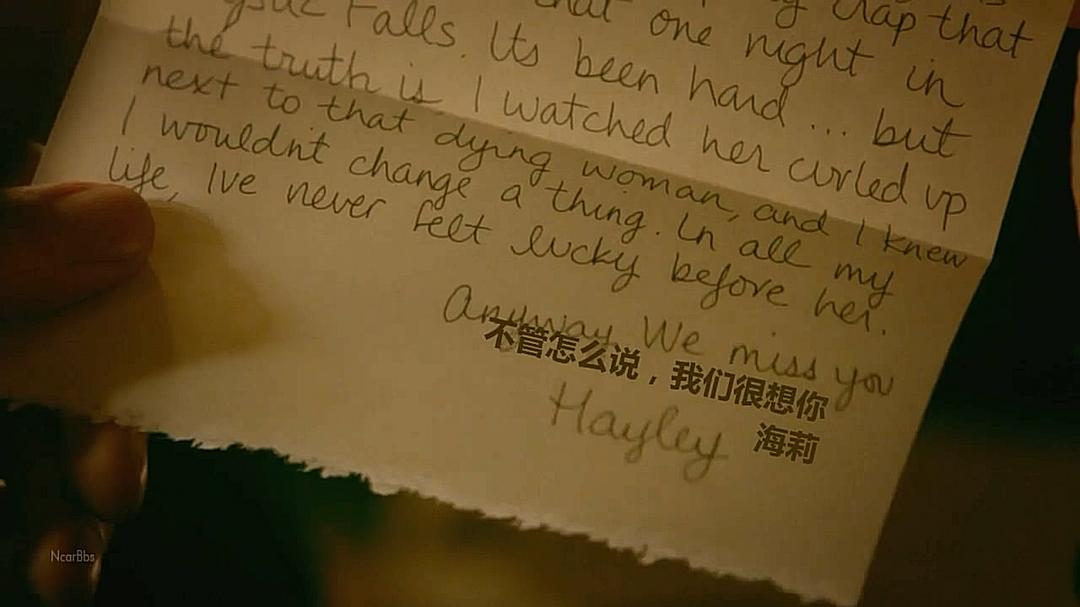 crap that
that one night in
Falls. Its been hard... but
the truth is I watched her curled up
next to that dying woman, and I knew
I wouldnt change a thing. In all my
life, Ive never felt lucky before her.
Anyway We miss you
不管怎么说，我们很想你
Hayley
海莉
NcarBbs